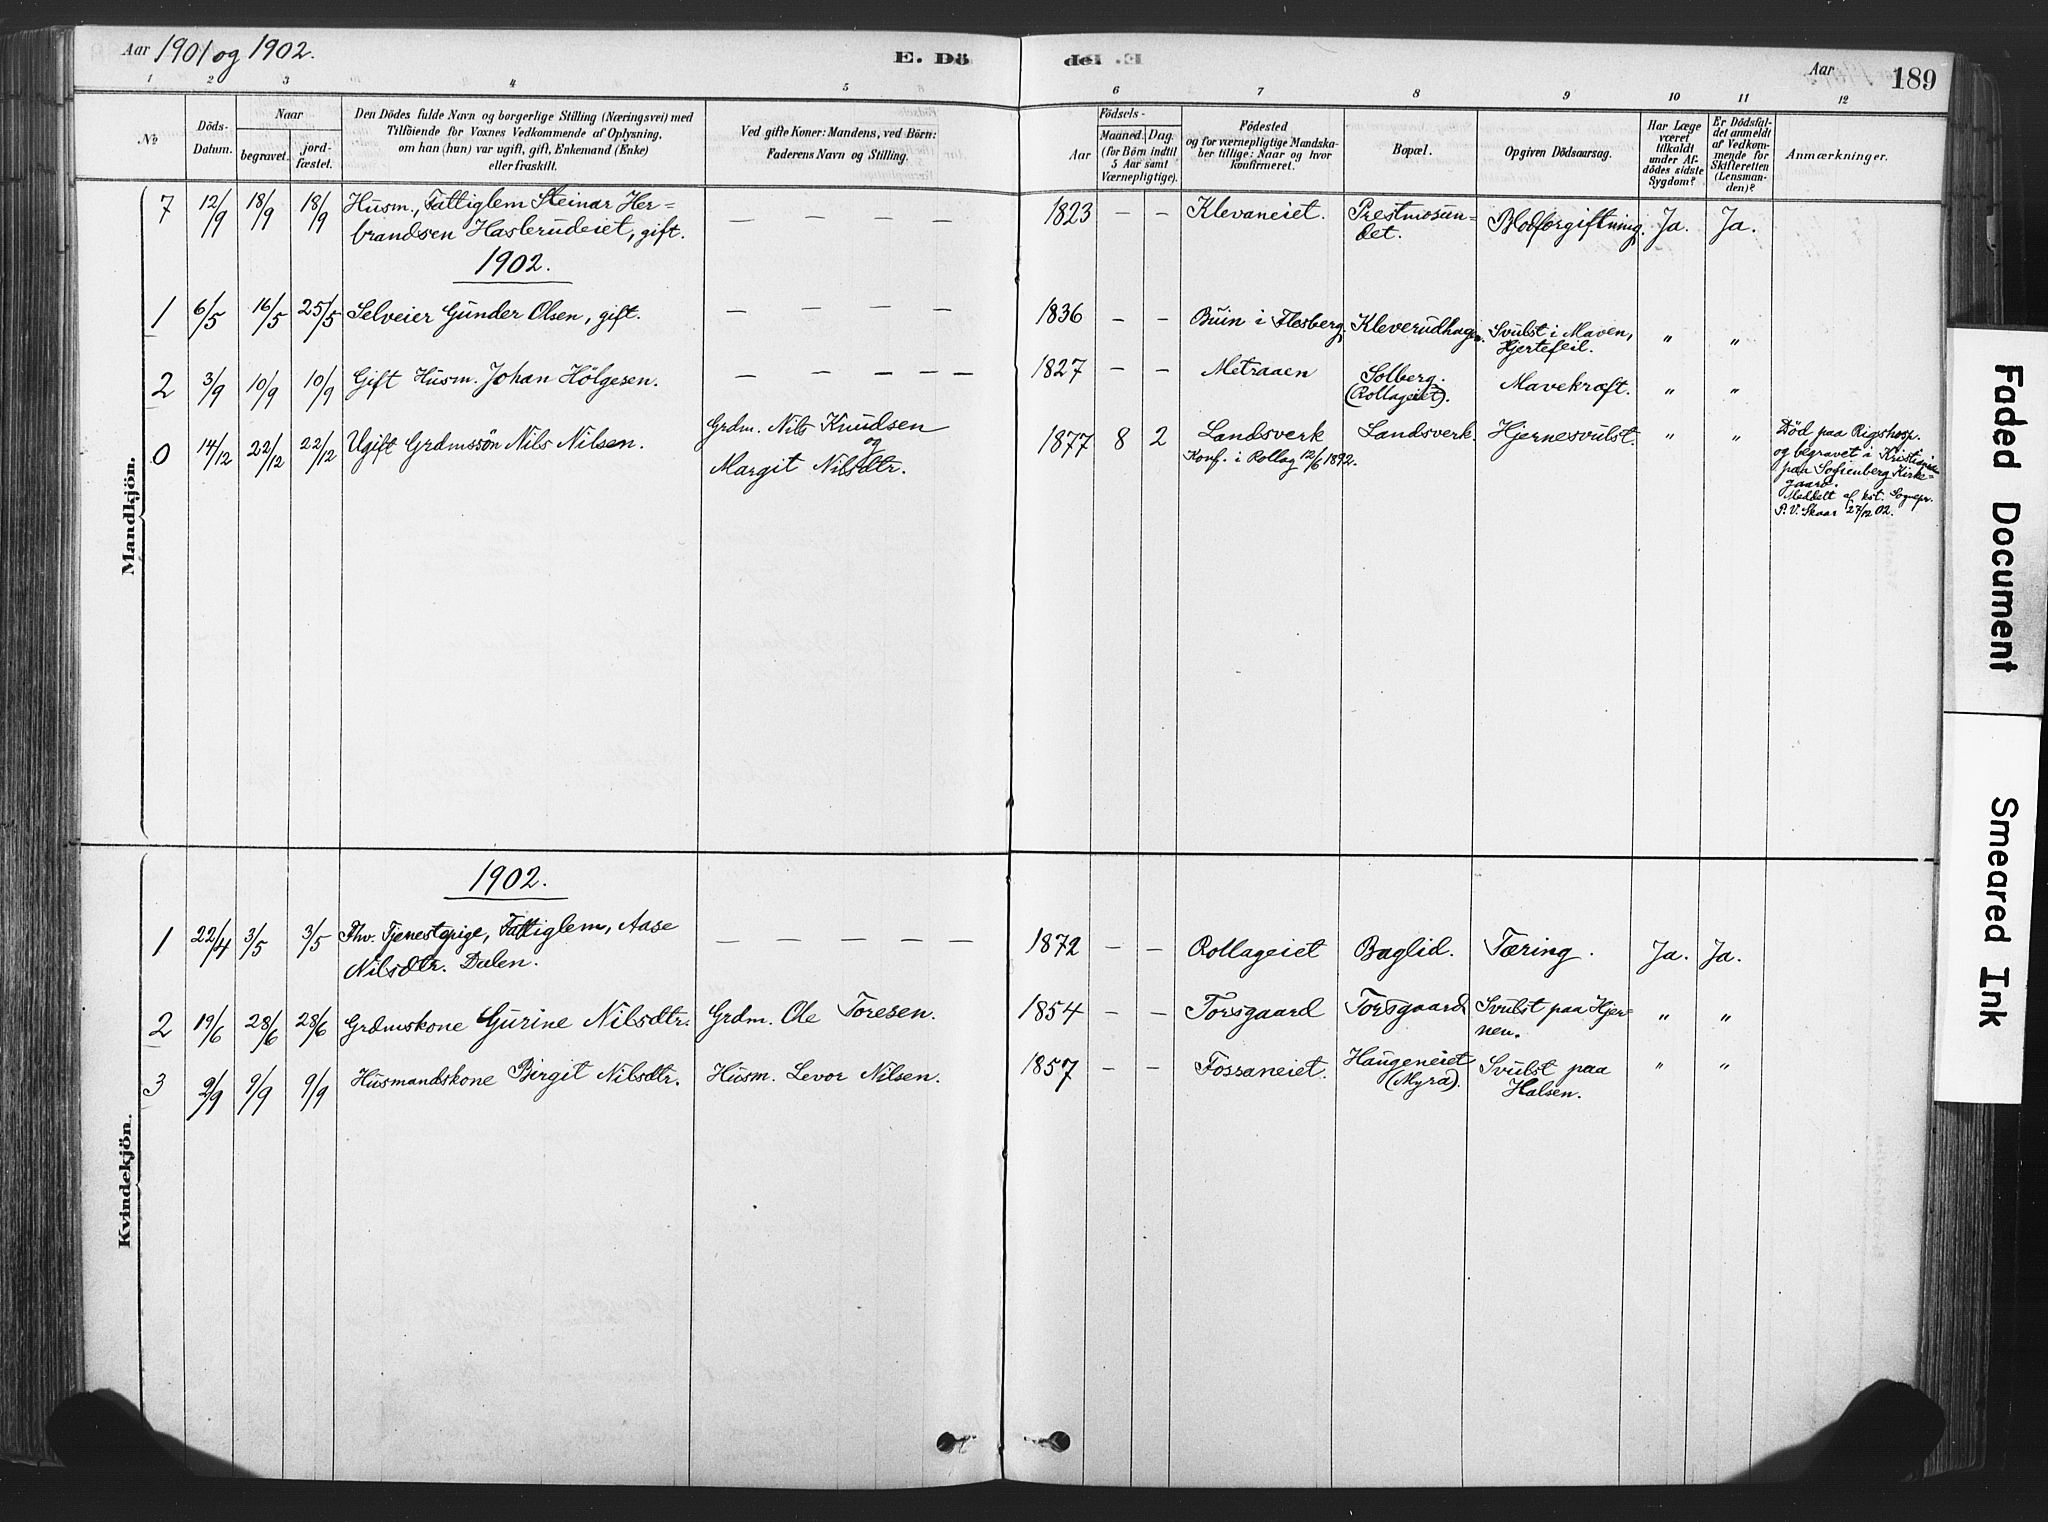 Aar 1901 og 1902.
E. Dö
del E.
Aar
189
1 2 3 4 5 6 7 8 9 10 11 12
No
Döds-Datum.
Naar
begravet.
jord-fæstet.
Den Dödes fulde Navn og borgerlige Stilling (Næringsvei) med
Tilföiende for Voxnes Vedkommende af Oplysning,
om han (hun) var ugift, gift, Enkemand (Enke)
eller fraskilt.
Ved gifte Koner: Mandens, ved Börn:
Faderens Navn og Stilling.
Födsels-
Aar
Maaned. Dag.
(for Börn indtil
5 Aar samt
Værnepligtige).
Födested
og for værnepligtige Mandska-
ber tillige: Naar og hvor
konfirmeret.
Bopæl.
Opgiven Dödsaarsag.
Har Læge
været
tilkaldt
under Af-
dödes sidste
Sygdom?
Er Dödsfal-
det anmeldt
af Vedkom-
mende for
Skifteretten
(Lensman-
den)?
Anmærkninger.
Mandkjön.
7 12/9 18/9 18/9 Husm., Fattiglem Steinar Her- — — — — 1823 — — Klevaneiet. Prestmosun- Blodforgiftning. Ja. Ja.
brandsen Haslerudeiet, gift. det.
1902.
1 6/5 16/5 25/5 Selveier Gunder Olsen, gift. — — — — 1836 — — Buin i Flesberg, Kleverudhagen. Svulst i Maven, " "
Hjertefeil.
2 3/9 10/9 10/9 Gift Husm. Johan Hölgesen. — — — — — 1827 — — Metraaen Solberg. Mavekræft. " "
(Rollageiet).
0 14/12 22/12 22/12 Ugift Grdmssön Nils Nilsen. Grdm. Nils Knudsen 1877 8 2 Landsverk Landsverk. Hjernesvulst. " " Död paa Rigshosp.
og
Margit Nilsdtr. Konf. i Rollag 12/6 1892. og begravet i Kristiania
paa Sofienberg Kirke-
gaard.
Meddelt af kst. Sognepr.
P. V. Skaar 27/12 02.
Kvindekjön.
1902.
1 22/4 3/5 3/5 Fhv. Tjenestepige, Fattiglem, Aase — — — — — 1872 — — Rollageiet Baglid. Tæring. Ja. Ja.
Nilsdtr. Dalen.
2 19/6 28/6 28/6 Grdmskone Gurine Nilsdtr. Grdm. Ole Toresen. 1854 — — Torsgaard Torsgaard Svulst paa Hjer- " "
nen.
3 2/9 9/9 9/9 Husmandskone Birgit Nilsdtr. Husm. Levor Nilsen. 1857 — — Fossaneiet. Haugeneiet Svulst paa " "
(Myra). Halsen.
Faded Document
Smeared Ink